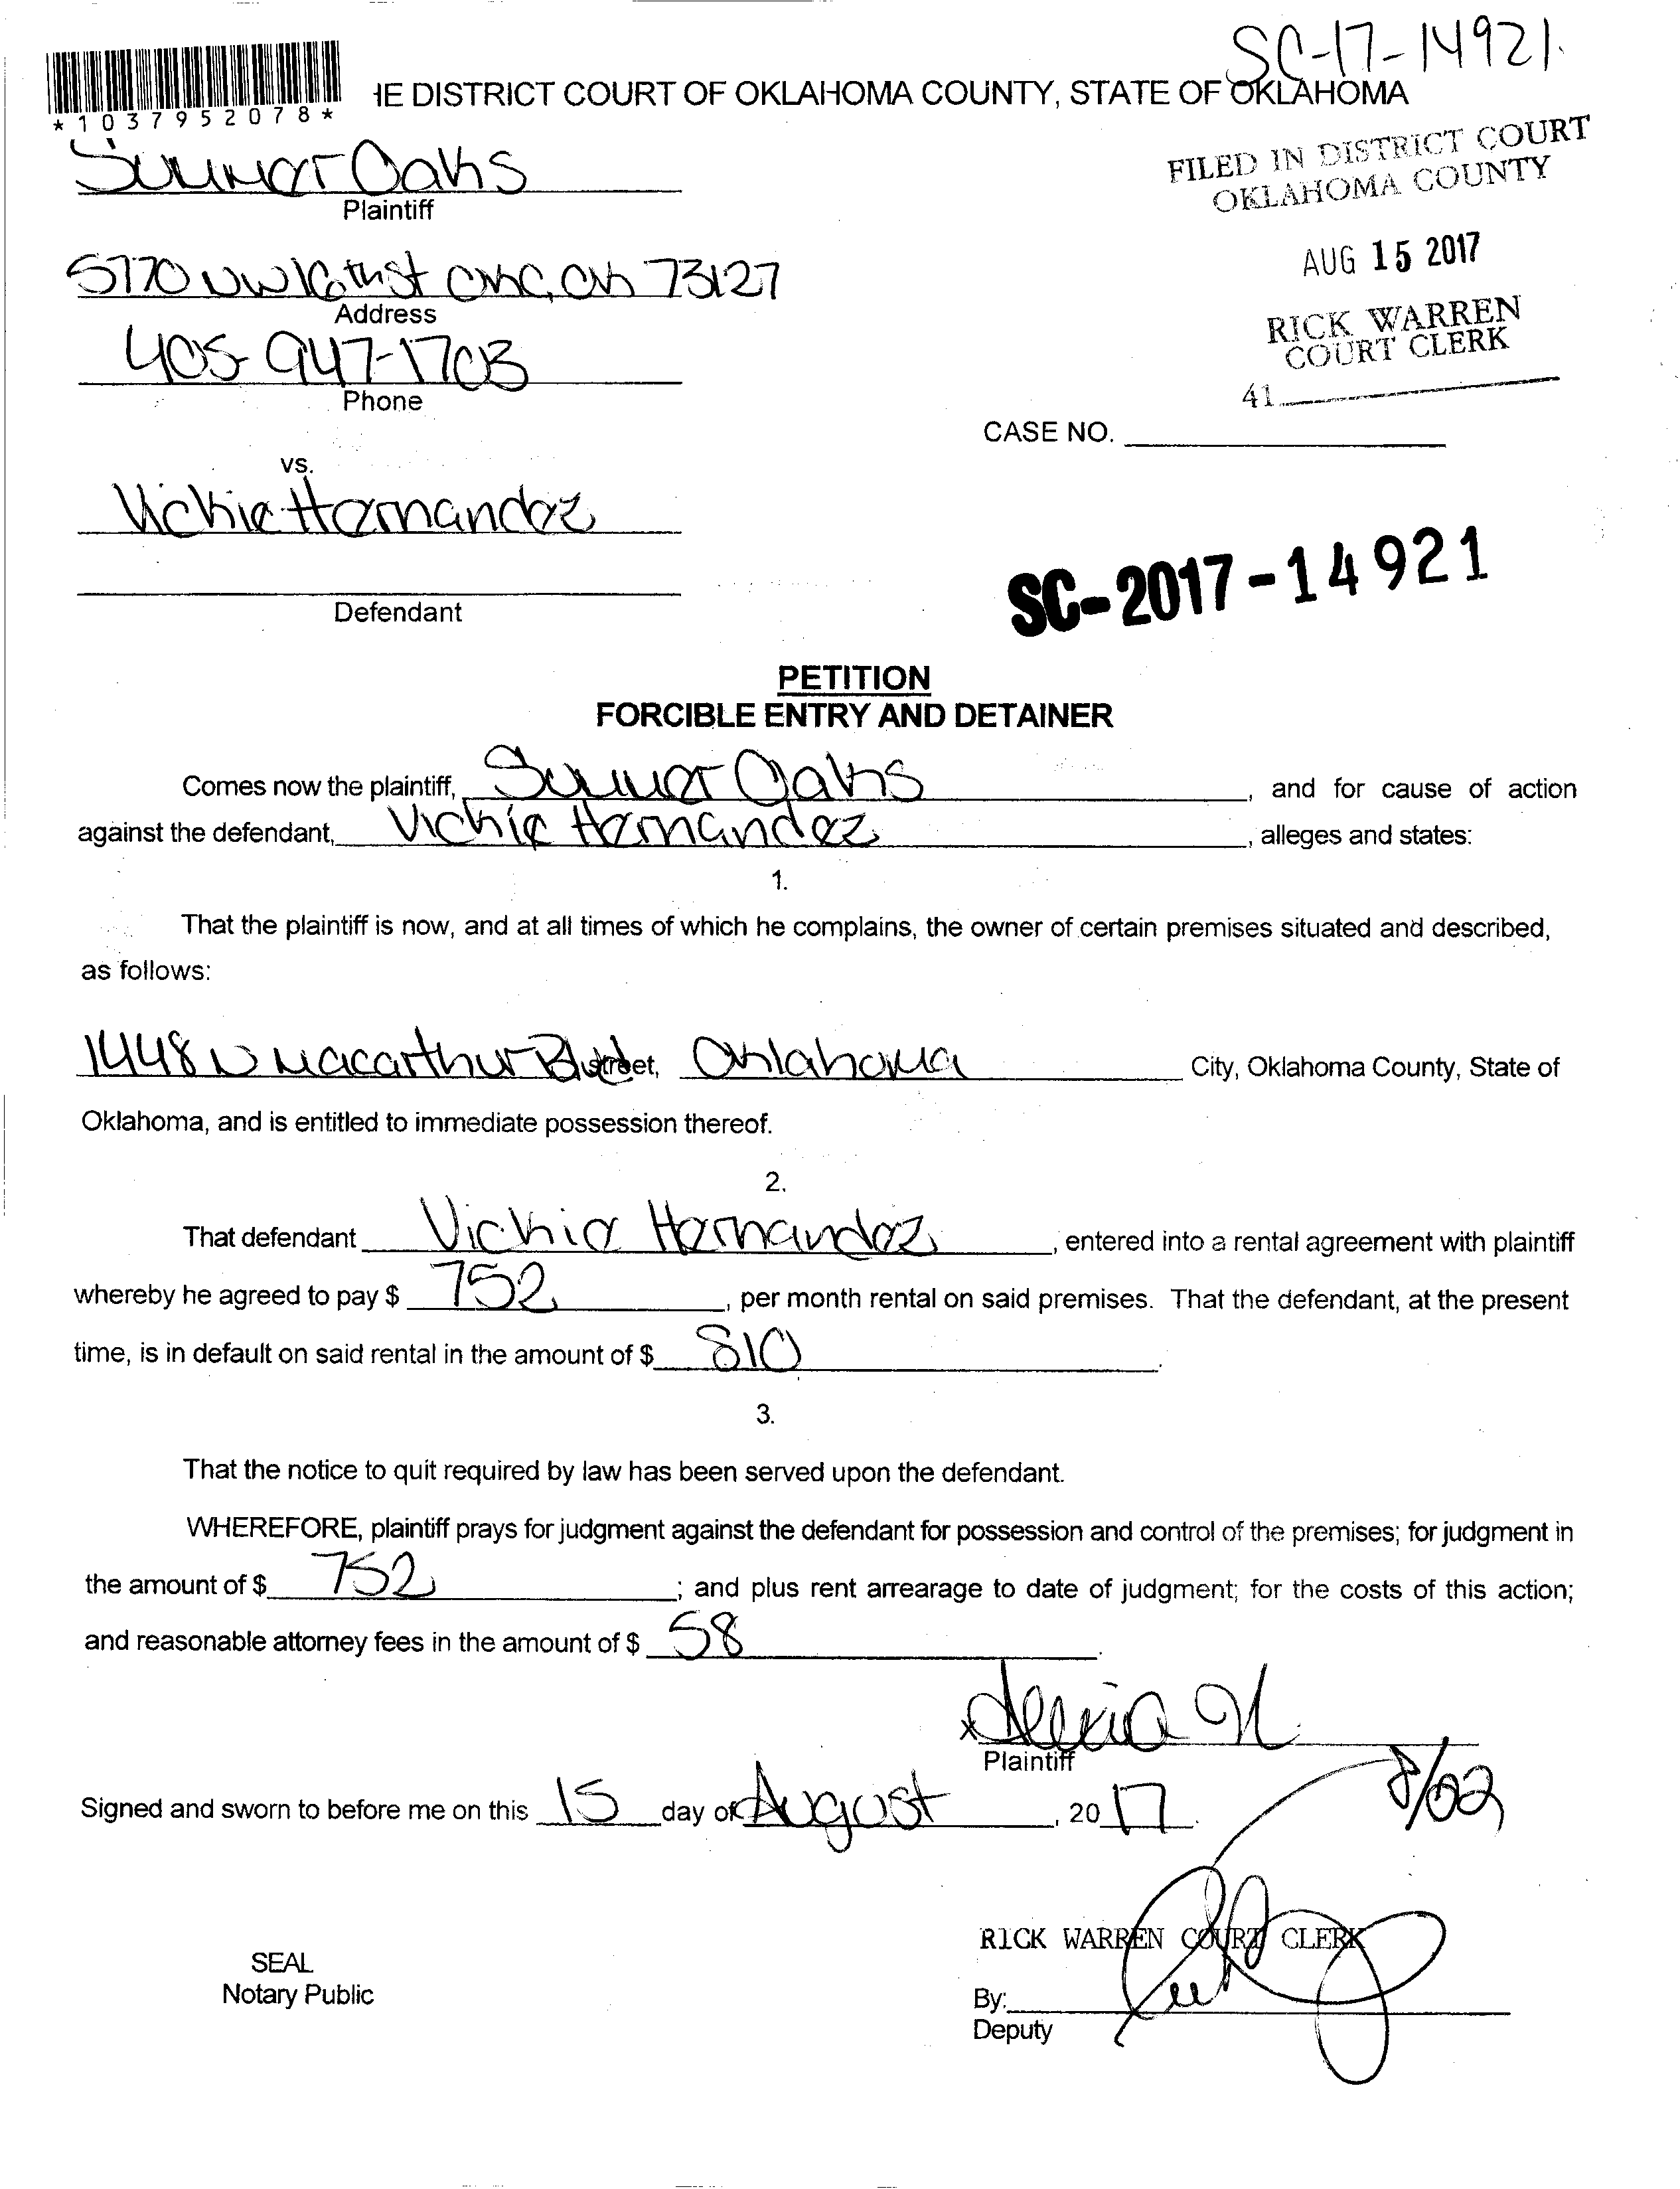 SC-17-14921
*1037952078*
HE DISTRICT COURT OF OKLAHOMA COUNTY, STATE OF OKLAHOMA
FILED IN DISTRICT COURT
OKLAHOMA COUNTY
Summer Oaks
Plaintiff
AUG 15 2017
5770 NW 16th St OKC, OK 73127
Address
RICK WARREN
COURT CLERK
405-947-1703
Phone
41
CASE NO.
vs.
Vickie Hernandez
Defendant
SC-2017-14921
PETITION
FORCIBLE ENTRY AND DETAINER
Comes now the plaintiff, Summer Oaks, and for cause of action
against the defendant, Vickie Hernandez, alleges and states:
1.
That the plaintiff is now, and at all times of which he complains, the owner of certain premises situated and described,
as follows:
1448 N Macarthur Blvd street, Oklahoma City, Oklahoma County, State of
Oklahoma, and is entitled to immediate possession thereof.
2.
That defendant Vickie Hernandez, entered into a rental agreement with plaintiff
whereby he agreed to pay $ 752, per month rental on said premises. That the defendant, at the present
time, is in default on said rental in the amount of $ 810.
3.
That the notice to quit required by law has been served upon the defendant.
WHEREFORE, plaintiff prays for judgment against the defendant for possession and control of the premises; for judgment in
the amount of $ 752; and plus rent arrearage to date of judgment; for the costs of this action;
and reasonable attorney fees in the amount of $ 58.
x
Plaintiff
8/22
Signed and sworn to before me on this 15 day of August, 2017.
RICK WARREN COURT CLERK
SEAL
Notary Public
By:
Deputy